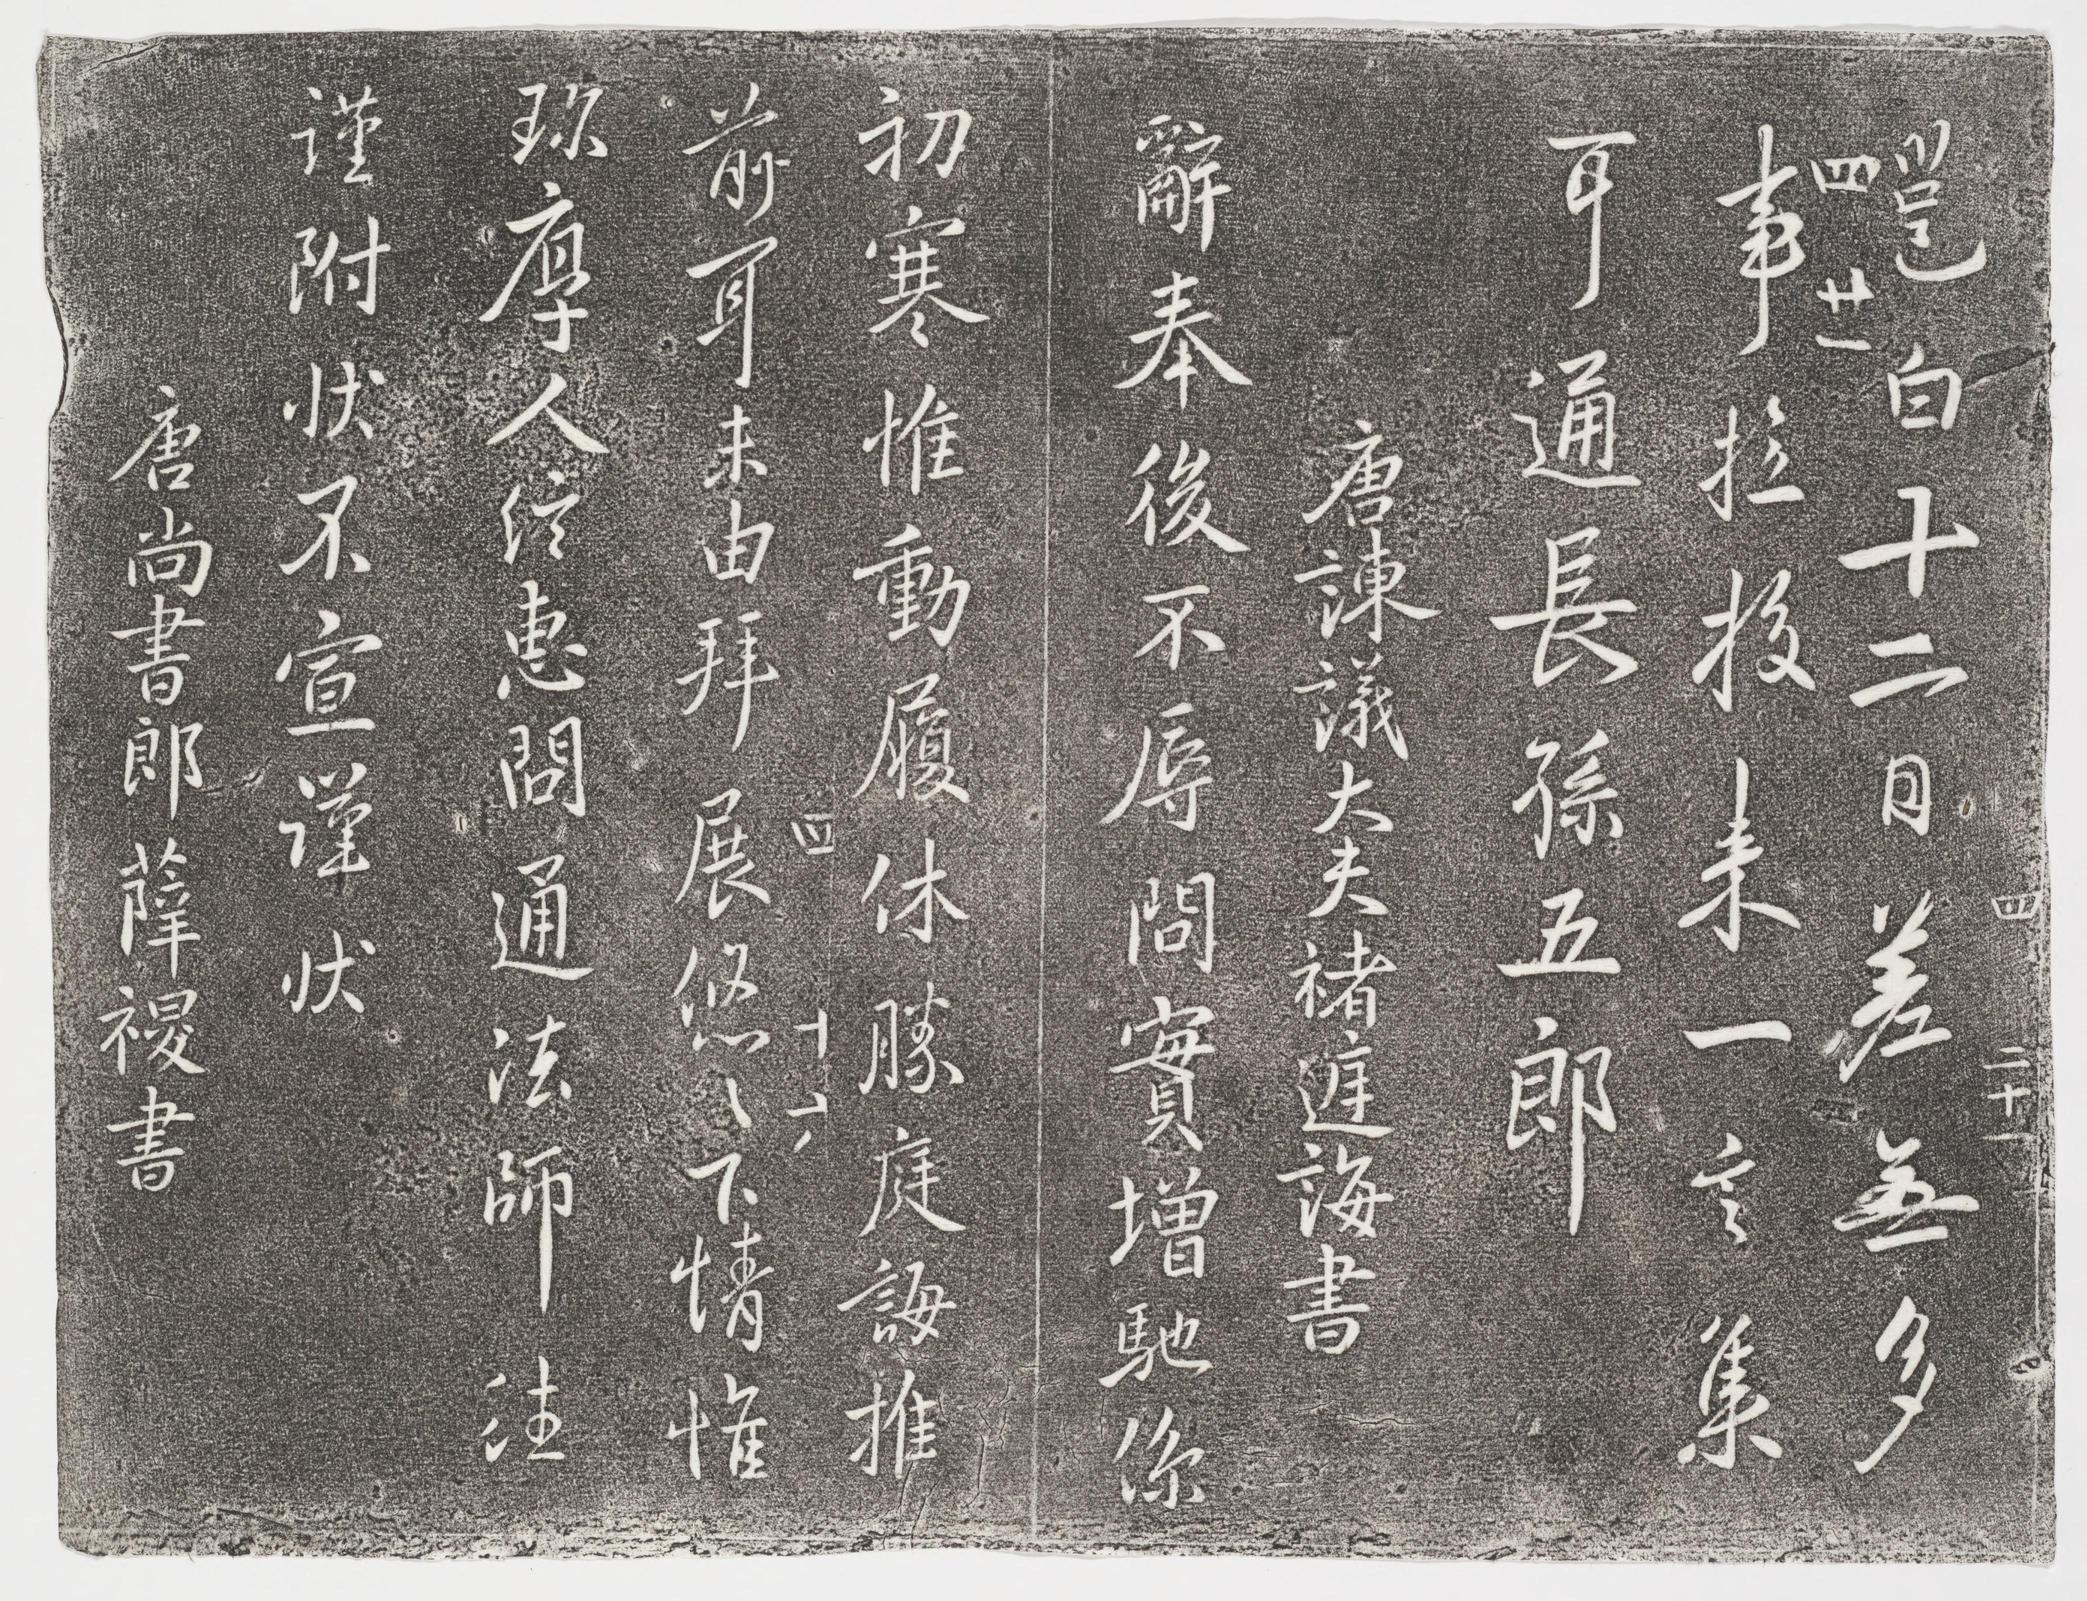 邕白十二日差無多
四 廿一
事拉投来一言集
耳通長孫五郎
唐諫議大夫褚遂誨書
辭奉後不辱問實增馳係
初寒惟動履休勝庭誨推
前耳未由拜展悠々下情惟
珎厚人信惠問通法師往
謹附状不宣謹状
唐尚書郎薛稷書
四 二十一
四 十六